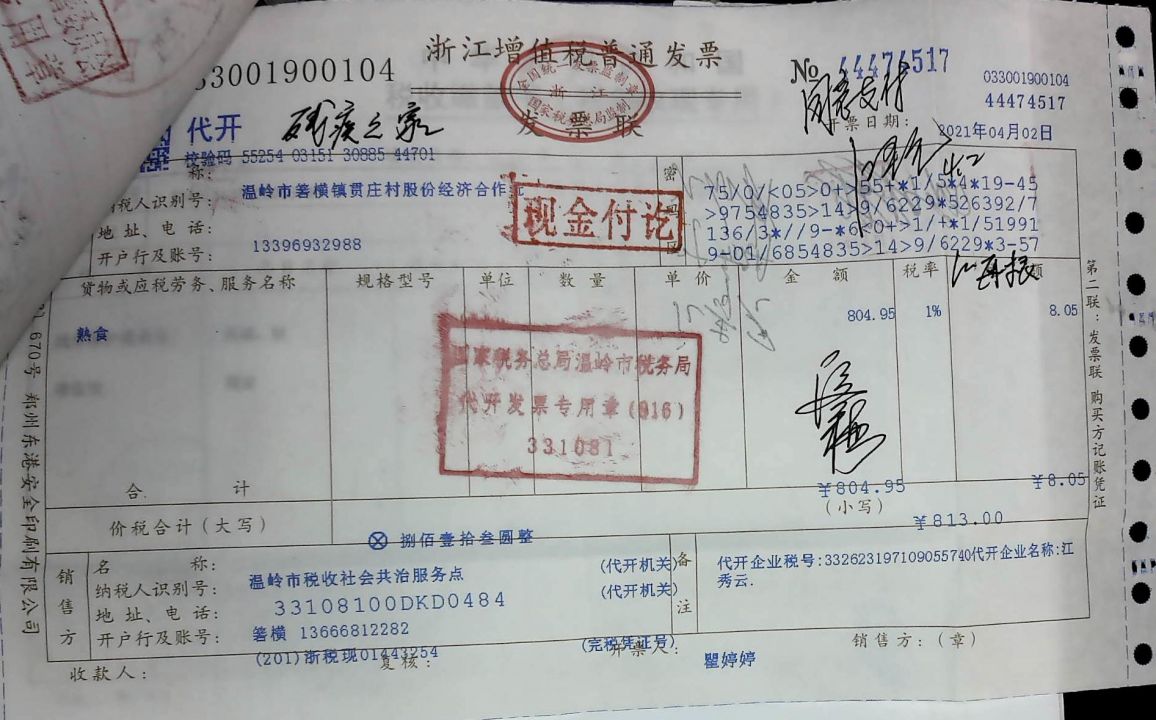 浙江增值税普通发票
033001900104
No 44476517
033001900104
44474517
全国统一发票监制章
浙江
国家税务总局监制
发票联
代开
残疾之家
同意支付
开票日期:
2021年04月02日
校验码 55254 03151 30885 44701
称:
温岭市箬横镇贯庄村股份经济合作
纳税人识别号:
地址、电话:
13396932988
开户行及账号:
现金付讫
密
75/0/<05>0+>55+*1/5*4*19-45
>9754835>14>9/6229*526392/7
136/3*//9-*6<0+>1/+*1/51991
9-01/6854835>14>9/6229*3-57
货物或应税劳务、服务名称
规格型号
单位
数量
单价
金额
税率
额
熟食
804.95
1%
8.05
国家税务总局温岭市税务局
代开发票专用章(916)
331081
合计
¥804.95
¥8.05
价税合计(大写)
ⓧ 捌佰壹拾叁圆整
(小写)
¥813.00
销售方
名称:
温岭市税收社会共治服务点
(代开机关)
纳税人识别号:
33108100DKD0484
(代开机关)
地址、电话:
箬横 13666812282
开户行及账号:
(201)浙税现01443254
(完税凭证号)
备注
代开企业税号:332623197109055740代开企业名称:江
秀云.
收款人:
复核:
开票人:
瞿婷婷
销售方:(章)
第二联:发票联 购买方记账凭证
670号 郑州东港安全印刷有限公司